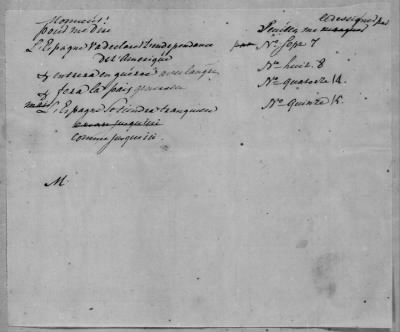 Monsieur
pour me dire
L'Espagne va declarer l'independance
del' Amerique
& entrera en guerre avec langre
& fera la paix generale
mais L'Espagne se tiendra tranquille
comme jusqu'ici
M.
cidessigné par
Veuillez me marquer
Nº Sept 7
Nº huit. 8
Nº quatorze 14.
Nº Quinze 15.